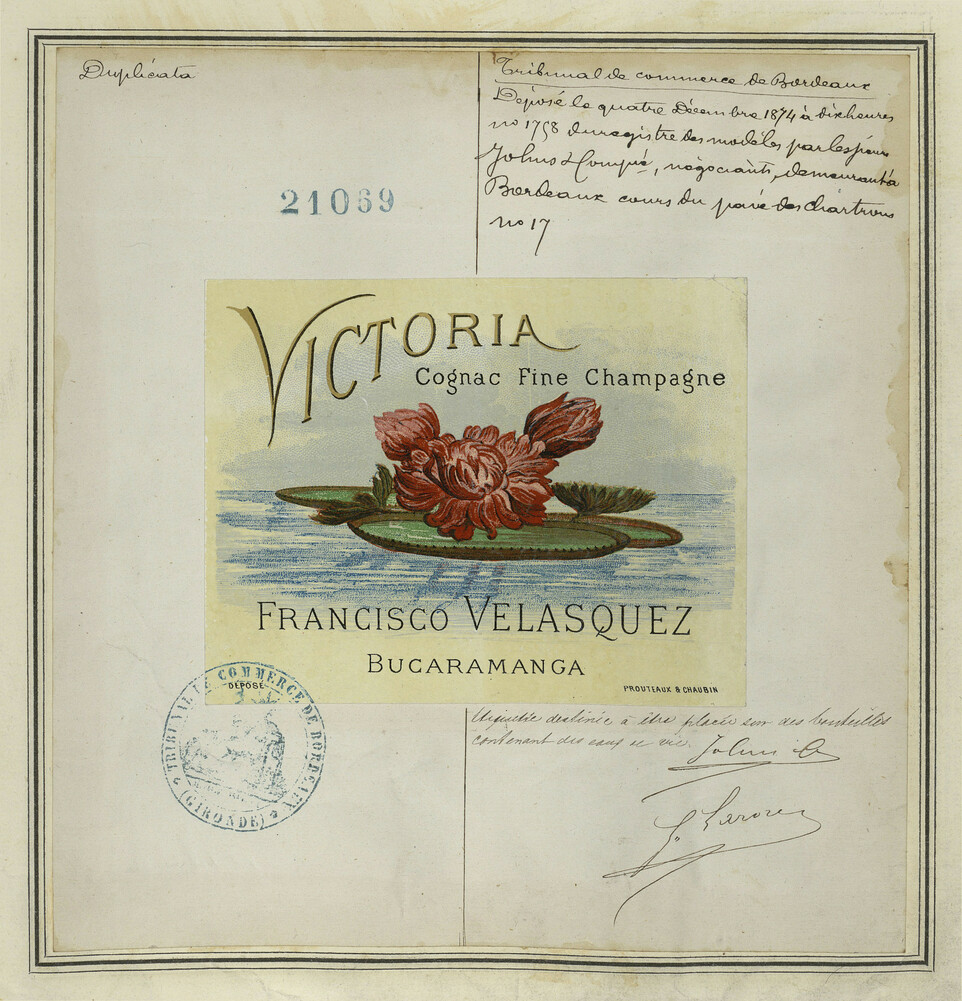 Duplicata
Tribunal de commerce de Bordeaux
Déposé le quatre Décembre 1874 à dix heures
no 1758 du registre des modèles par les sieurs
Johns & Compie, négociants, demeurant à
Bordeaux cours du pavé des Chartrons
no 17
21069
VICTORIA
Cognac Fine Champagne
FRANCISCO VELASQUEZ
BUCARAMANGA
DÉPOSÉ
PROUTEAUX & CHAUBIN
TRIBUNAL DE COMMERCE DE BORDEAUX
(GIRONDE)
destinée à être placée sur des bouteilles
contenant des eaux de vie. Johns & Co